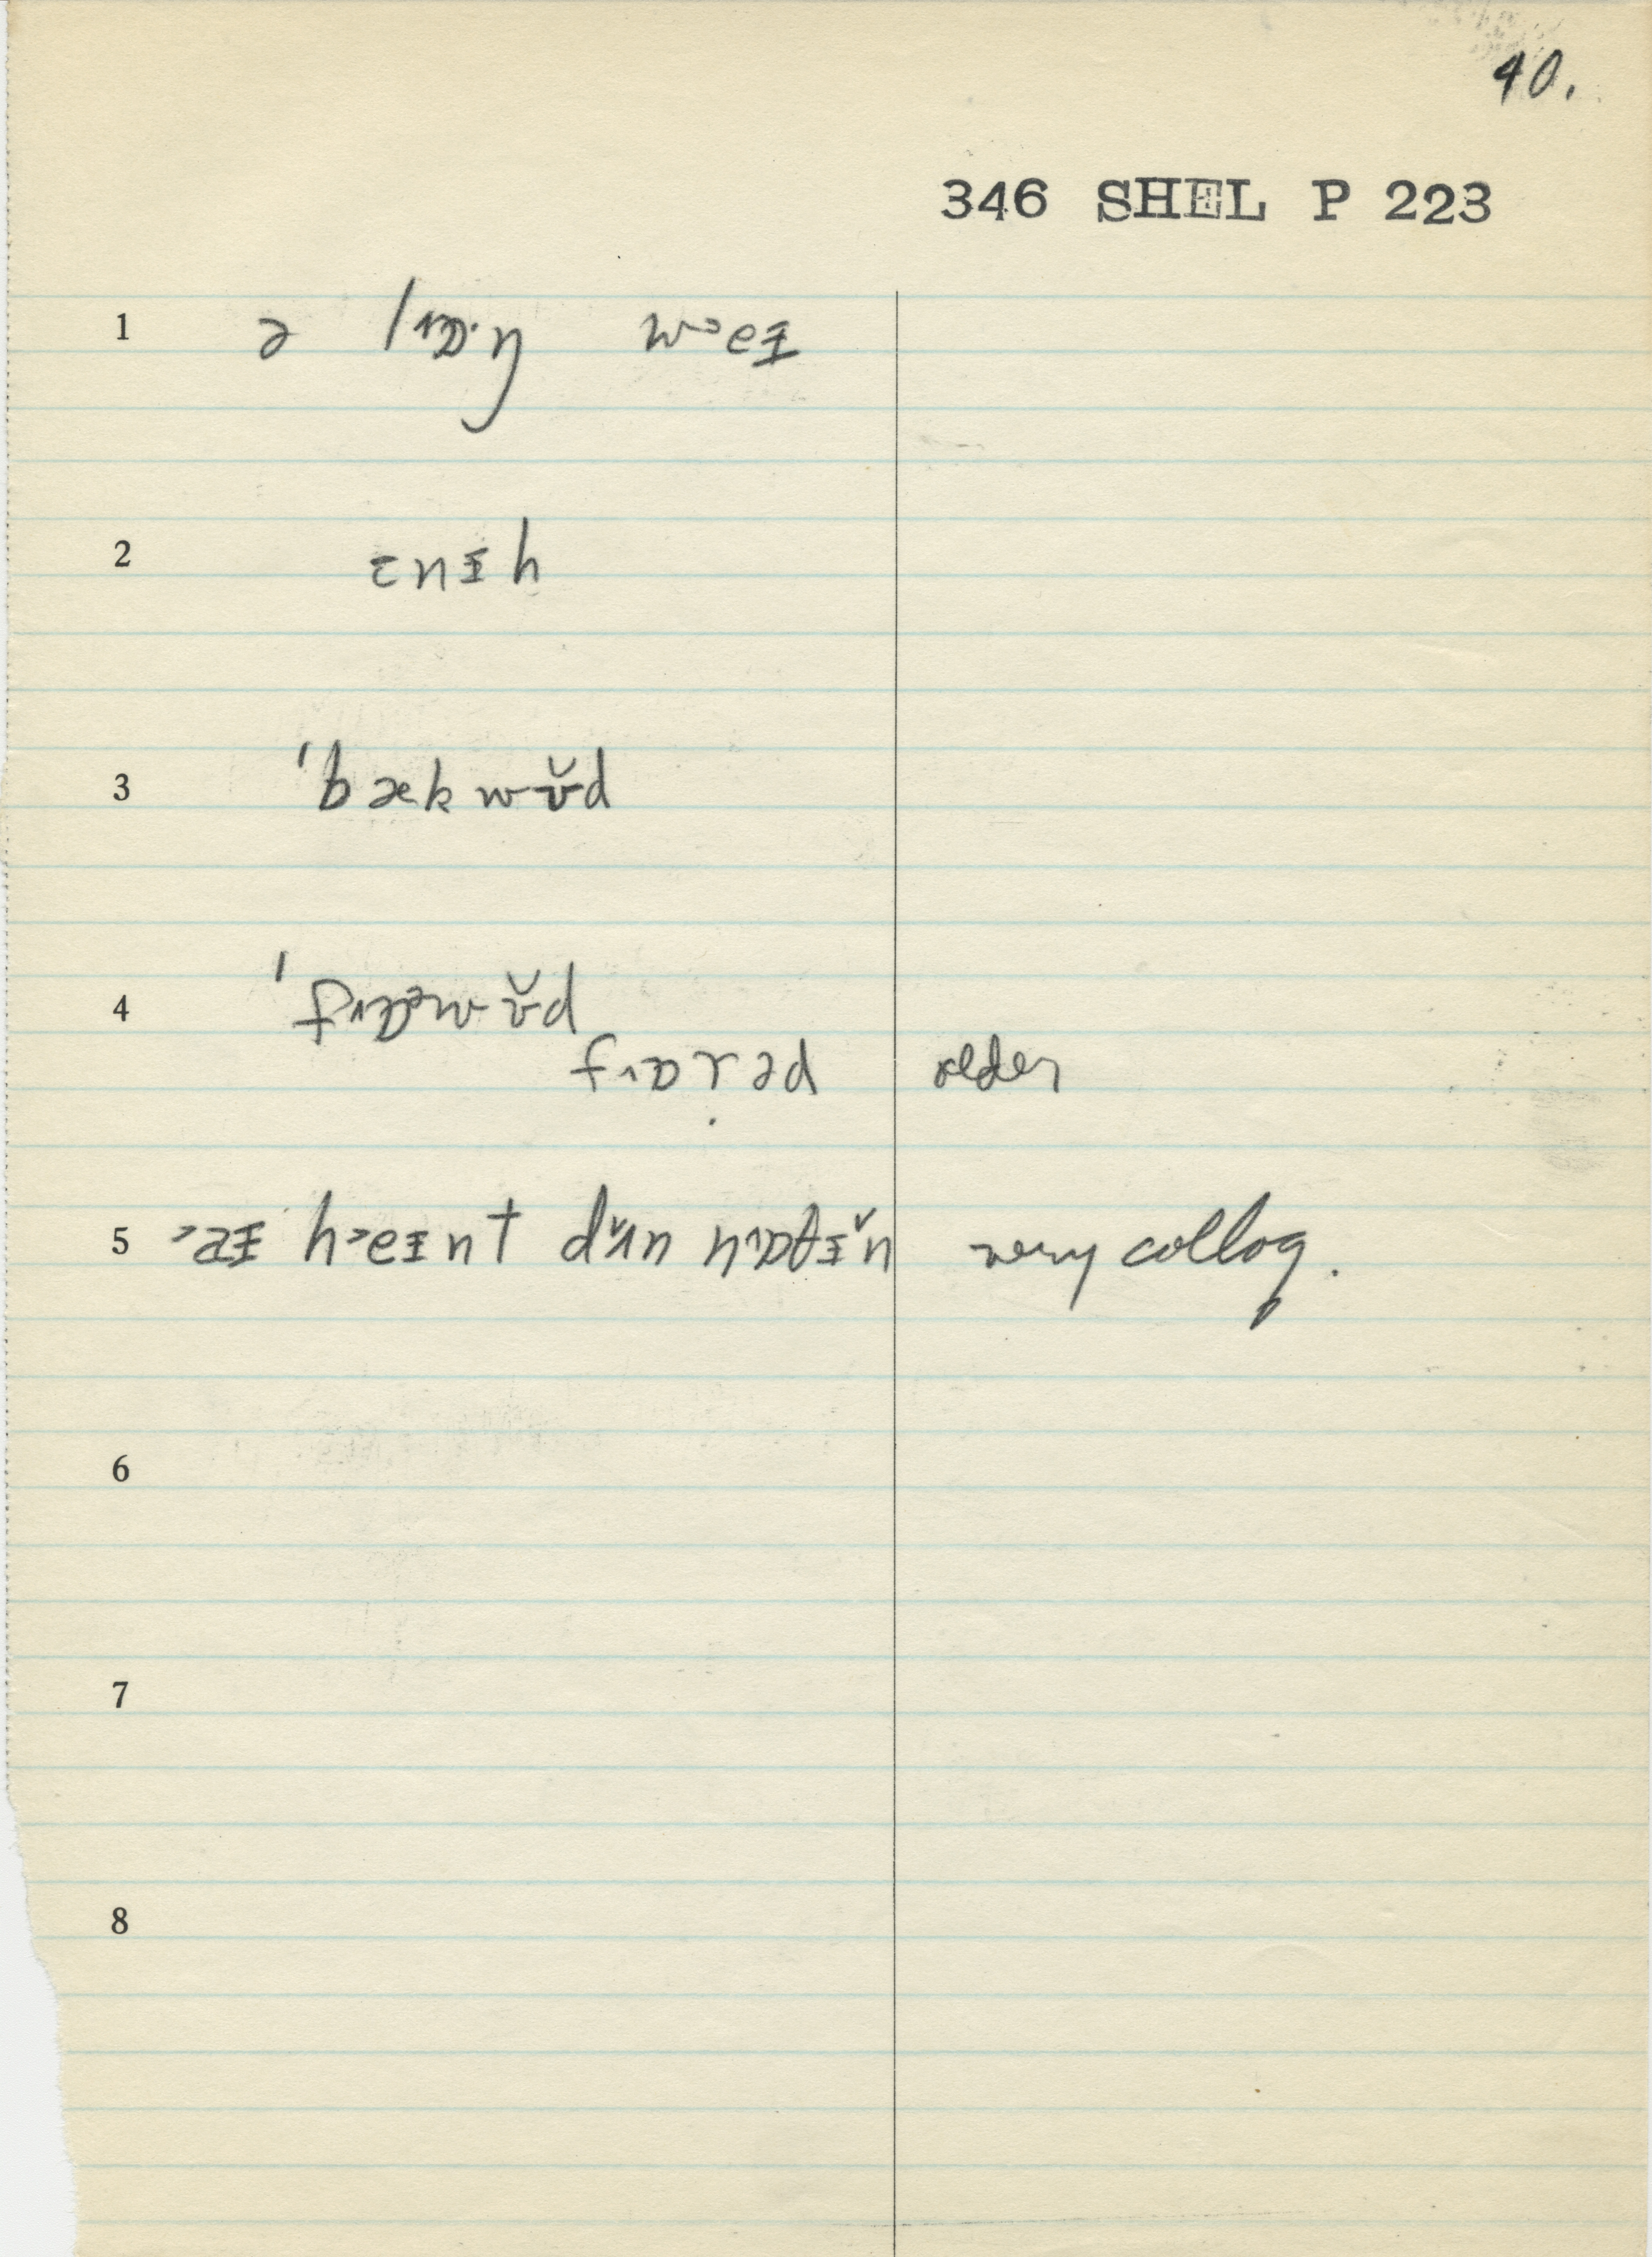 40.
346 SHEL P 223
1 ə lɒ˔·ŋ w˃eɪ
2 ɛnɪh
3 ˈbækwʊ̆d
4 ˈfɒ˔ᵊwʊ̆d
fɒ˔rəd older
5 ˃aɪ h˃eɪnt dʌ̆n nɒ˔θɪ̆n very colloq.
6
7
8